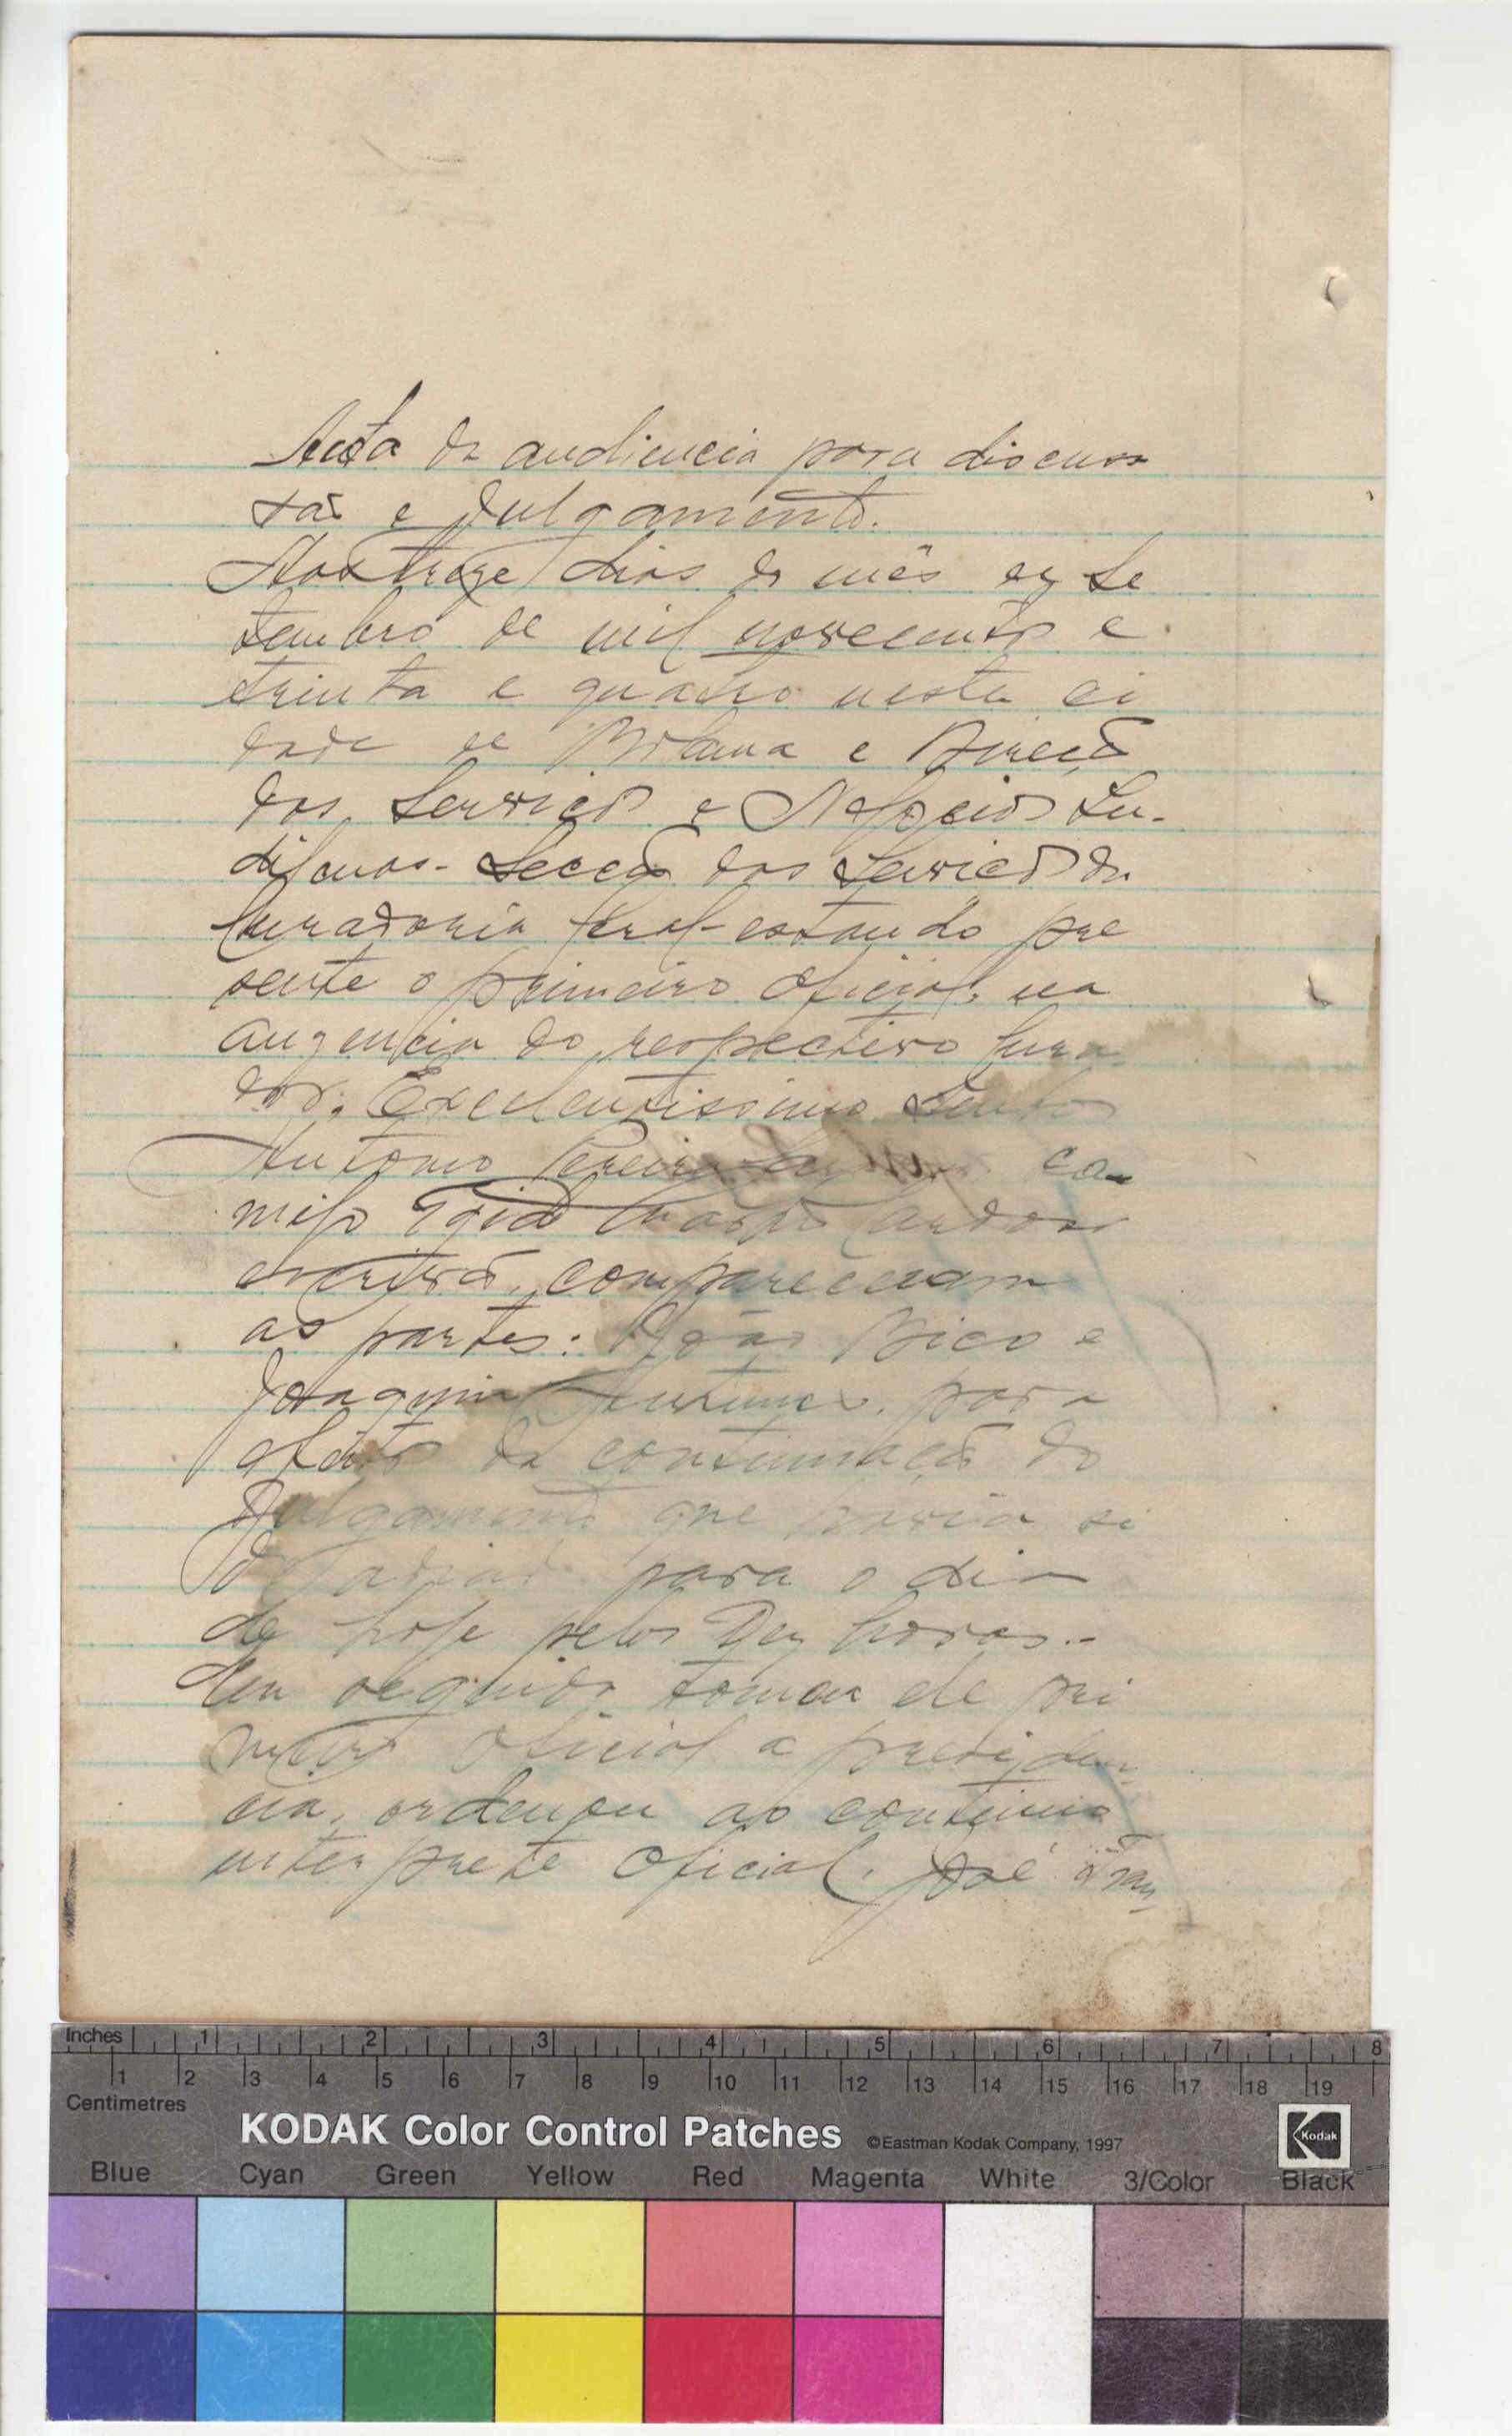 Acta da audiencia para discus
são e Julgamento.
Aos treze dias do mês de Se
tembro de mil novecentos e
trinta e quatro nesta ci
dade de Bolama e Direcção
dos Serviços e Negocios In-
digenas - Secção dos Serviços da
Curadoria Geral - estando pre
sente o primeiro oficial, na
auzencia do respectivo Cura
dor, Excelentissimo Senhor
Antonio Pereira co-
migo Cardoso
escrivão, compareceram
as partes: Bico e
Joaquim Antunes, para
efeitos da continuação do
Julgamento que havia si
do adiado para o dia
de hoje pelas Dez horas.-
Em seguida tomou ele pri
meiro oficial a presiden-
cia, ordenou ao continuo
interprete oficial, José
Inches 1 2 3 4 5 6 7 8
1 2 3 4 5 6 7 8 9 10 11 12 13 14 15 16 17 18 19
Centimetres
KODAK Color Control Patches ©Eastman Kodak Company, 1997 Kodak
Blue Cyan Green Yellow Red Magenta White 3/Color Black